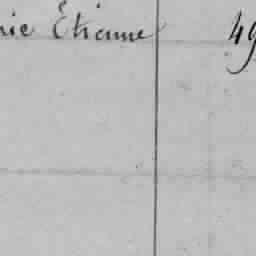 nie Étienne 49